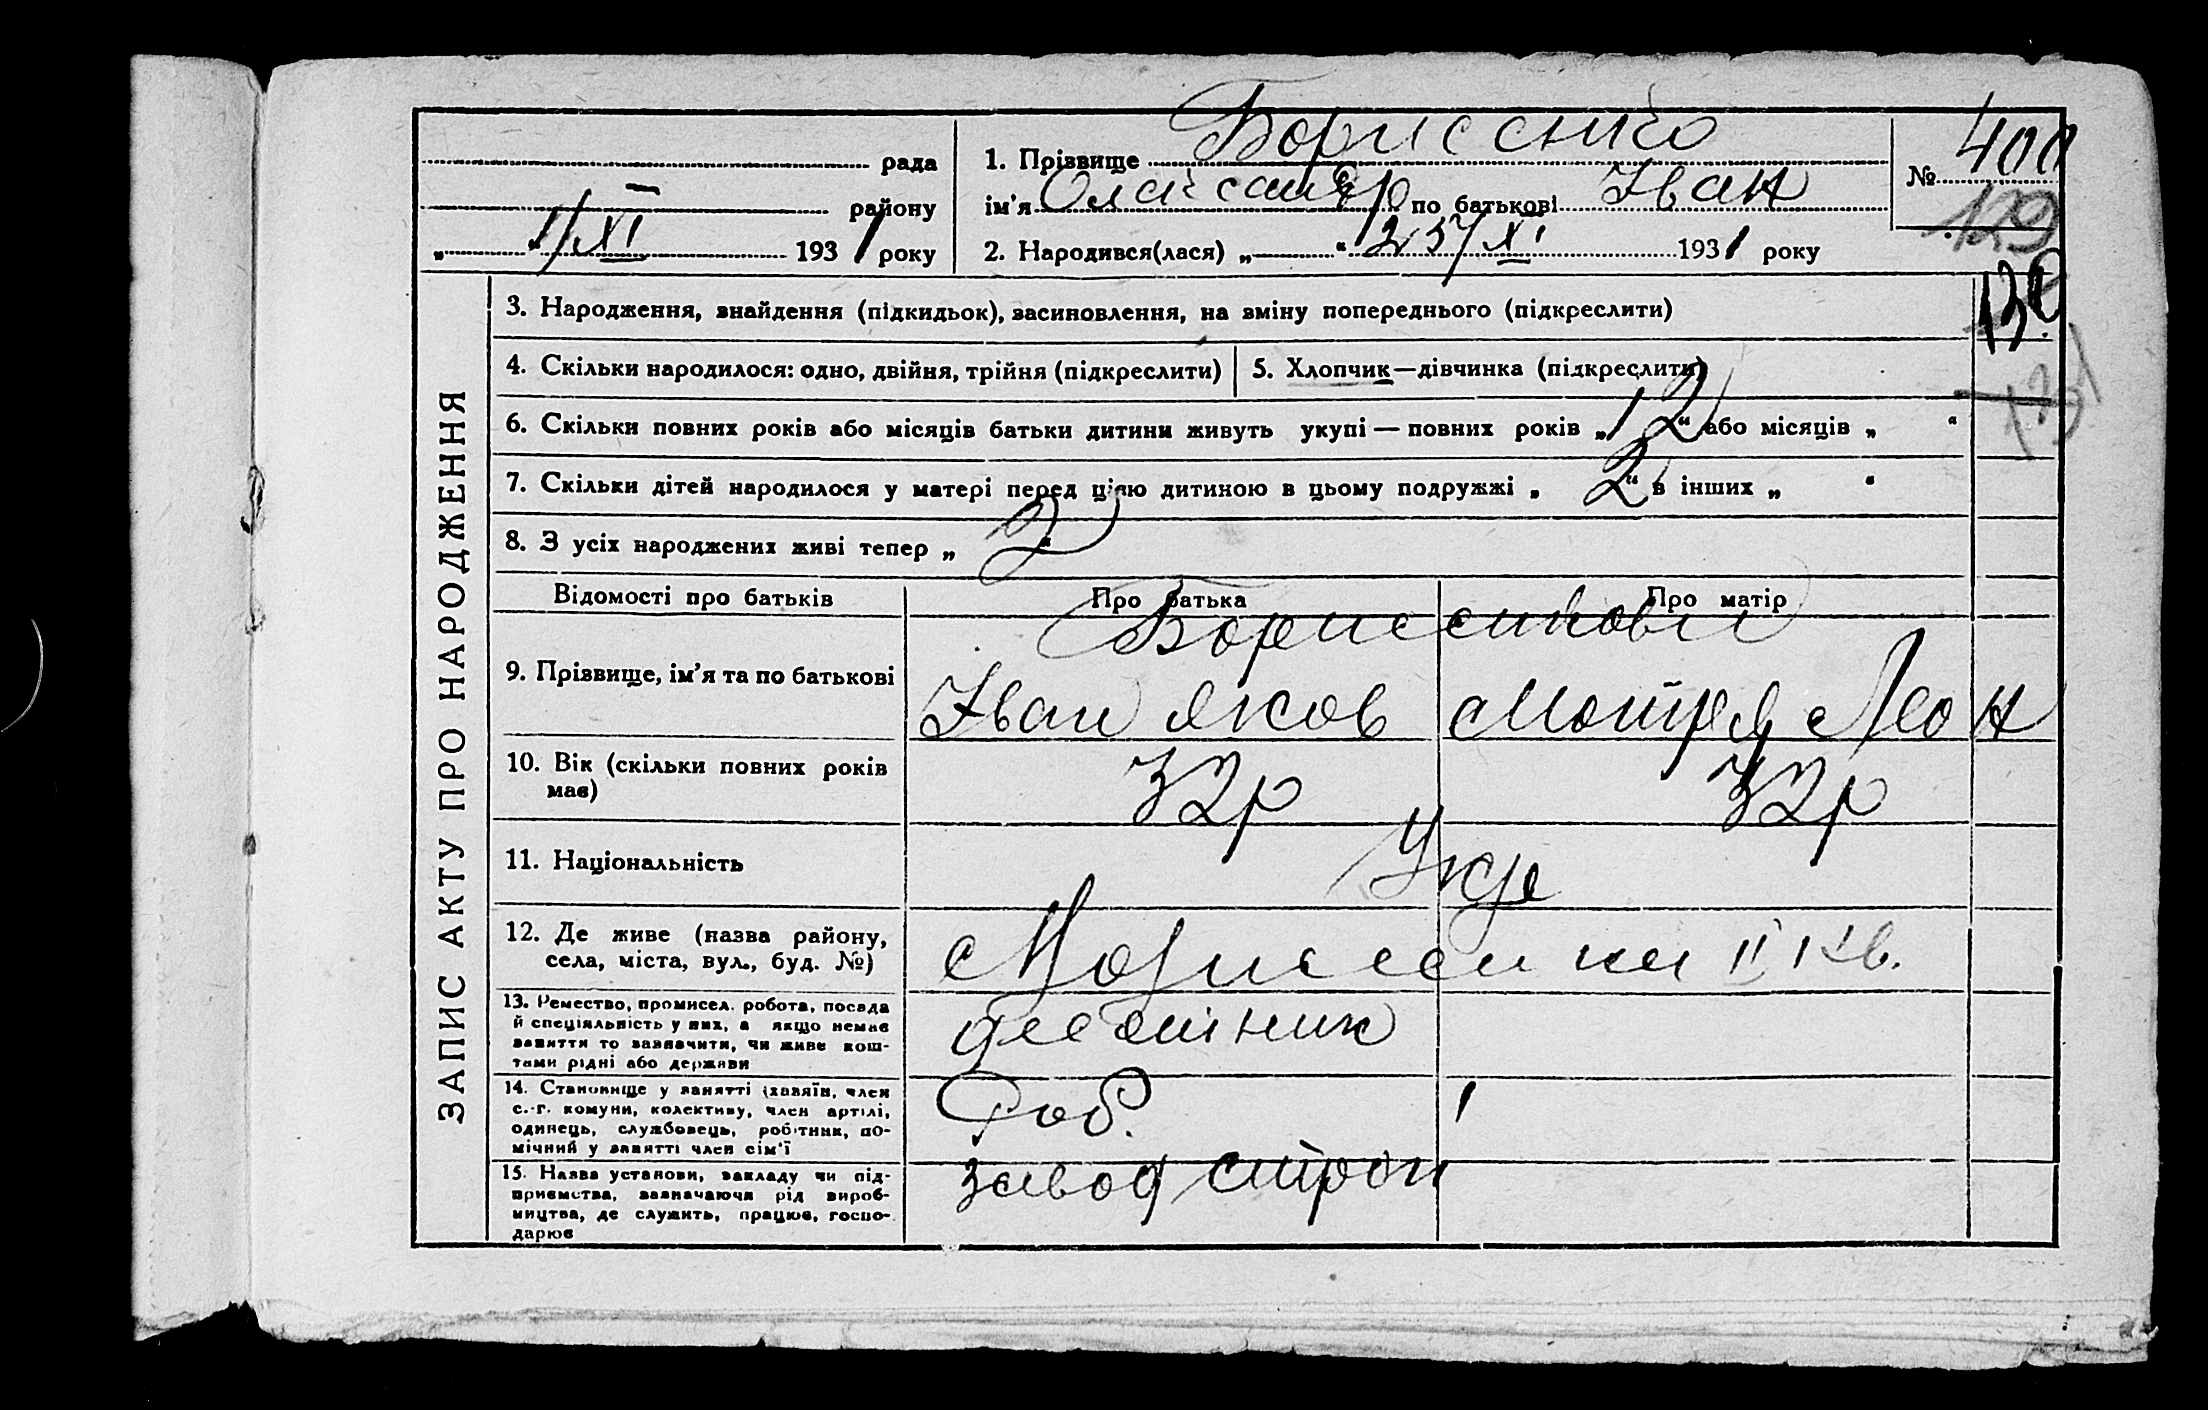 рада
району
1/XI 1931 року
1. Прізвище Борисенко
ім'я Олександр по батькові Іван
2. Народився(лася) „ “ 1931 року
№ 400
129
130
131
ЗАПИС АКТУ ПРО НАРОДЖЕННЯ
3. Народження, знайдення (підкидьок), засиновлення, на зміну попереднього (підкреслити)
4. Скільки народилося: одно, двійня, трійня (підкреслити)
5. Хлопчик—дівчинка (підкреслити)
6. Скільки повних років або місяців батьки дитини живуть укупі — повних років „12“ або місяців „ “
7. Скільки дітей народилося у матері перед цією дитиною в цьому подружжі „2“ в інших „ “
8. З усіх народжених живі тепер „2“
Відомості про батьків
Про батька
Про матір
9. Прізвище, ім'я та по батькові
Борисенкови
Іван Яков
Мотря Леон
10. Вік (скільки повних років
має)
32р
32р
11. Національність
Укр
12. Де живе (назва району,
села, міста, вул., буд. №)
II кв.
13. Ремество, промисел. робота, посада
й спеціяльність у них, а якщо немає
заняття то зазначити, чи живе кош-
тами рідні або держави
14. Становище у занятті (хазяїн, член
с.-г. комуни, колективу, член артілі,
одинець, службовець, робітник, по-
мічний у занятті член сім'ї
Роб.
15. Назва установи, закладу чи під-
приємства, зазначаючи рід вироб-
ництва, де служить, працює, госпо-
дарює
завод строй